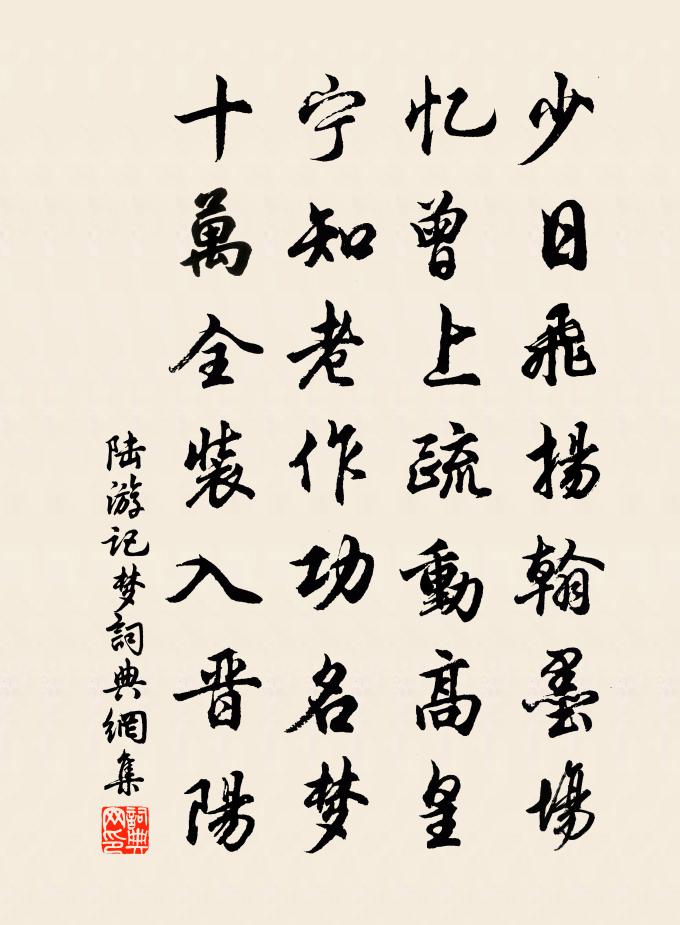 少日飛揚翰墨場
忆曾上疏動高皇
宁知老作功名梦
十萬全裝入晋陽
陆游记梦詞典網集
詞典网印